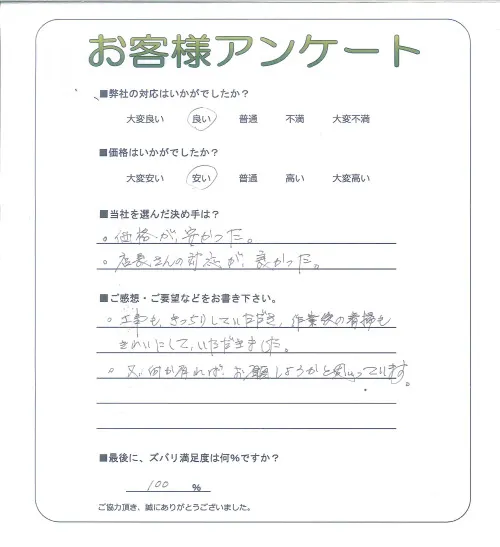 お客様アンケート
■弊社の対応はいかがでしたか?
大変良い 良い 普通 不満 大変不満
■価格はいかがでしたか?
大変安い 安い 普通 高い 大変高い
■当社を選んだ決め手は?
。価格が、安かった。
。店長さんの対応が、良かった。
■ご感想・ご要望などをお書き下さい。
。工事も、きっちりしていただき、作業後の清掃も
きれいにして、いただきました。
。又、何か有れば、お願しようかと思っています。
■最後に、ズバリ満足度は何%ですか?
100 %
ご協力頂き、誠にありがとうございました。